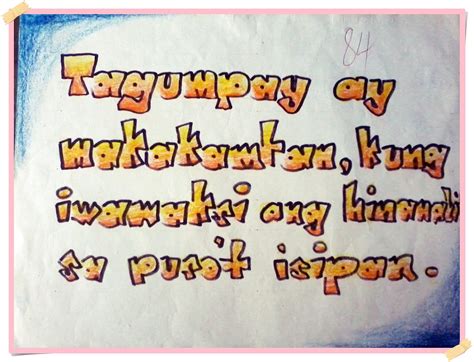 84
Tagumpay ay
makakamtan, kung
iwawaksi ang hinanali
sa puso't isipan.